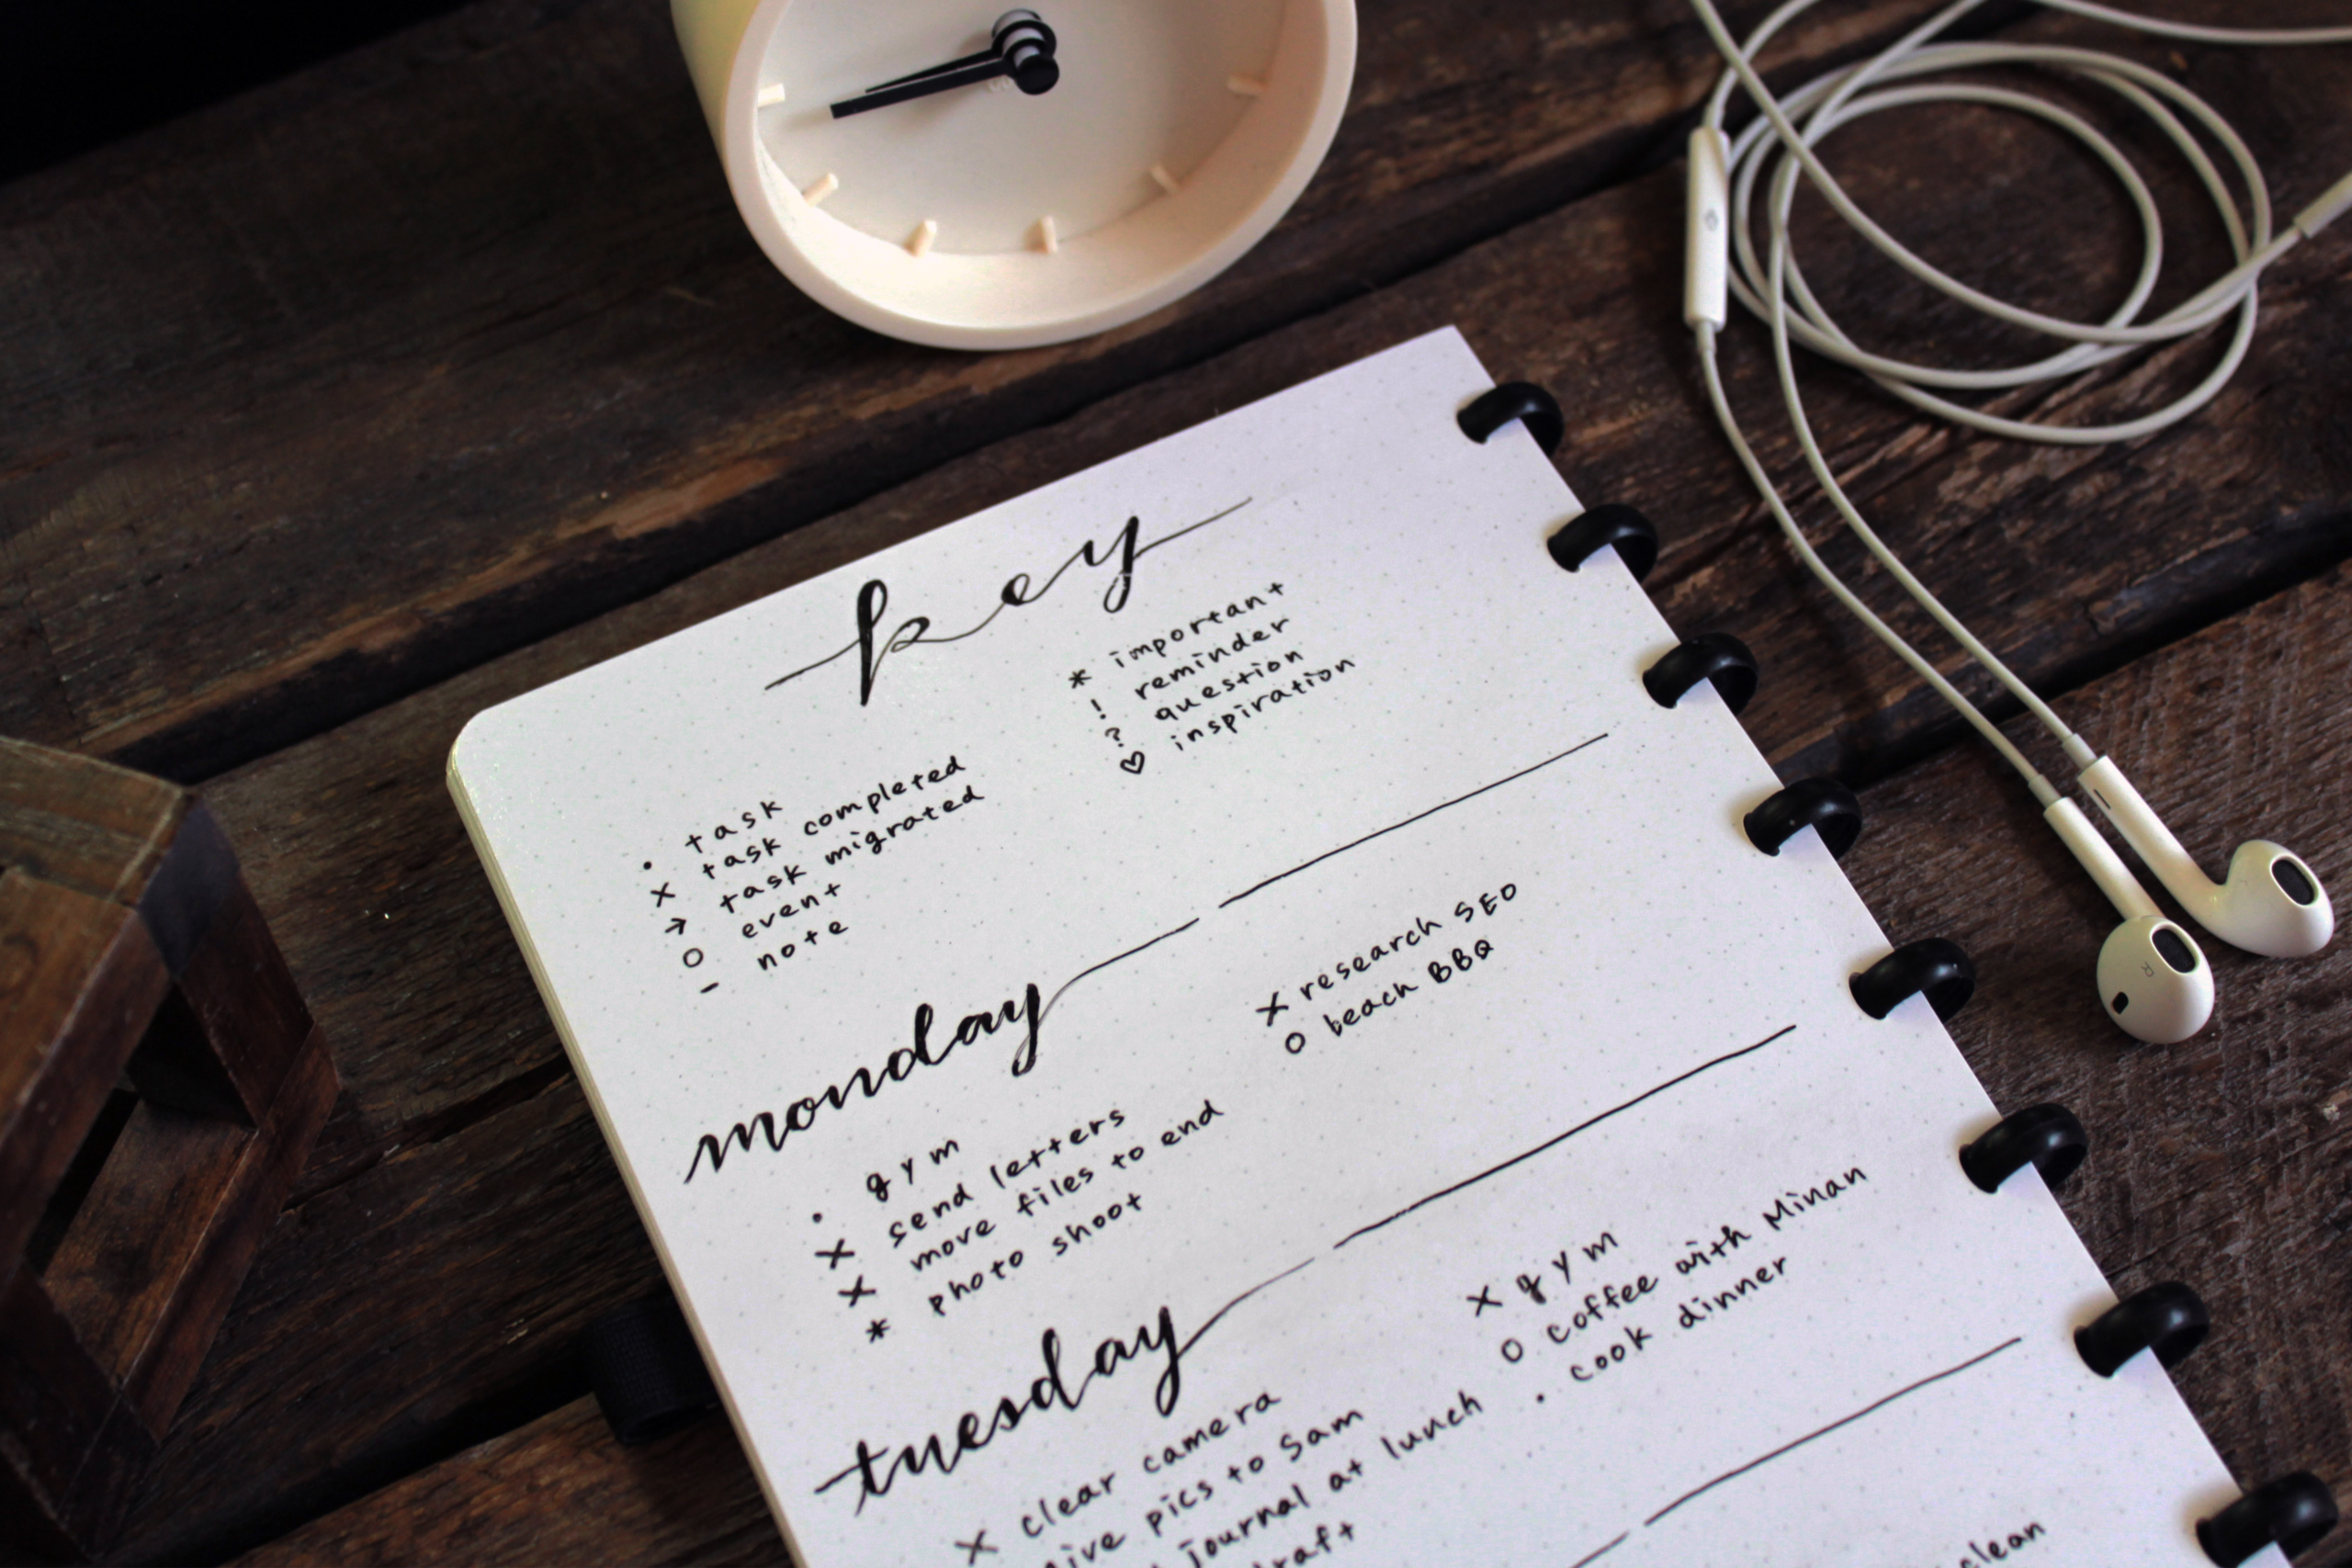 key
• task
x task completed
> task migrated
o event
- note
* important
! reminder
? question
♡ inspiration
monday
• gym
x send letters
x move files to end
* photo shoot
x research SEO
o beach BBQ
tuesday
x clear camera
pics to Sam
journal at lunch
x gym
o coffee with Minan
• cook dinner
clean
R